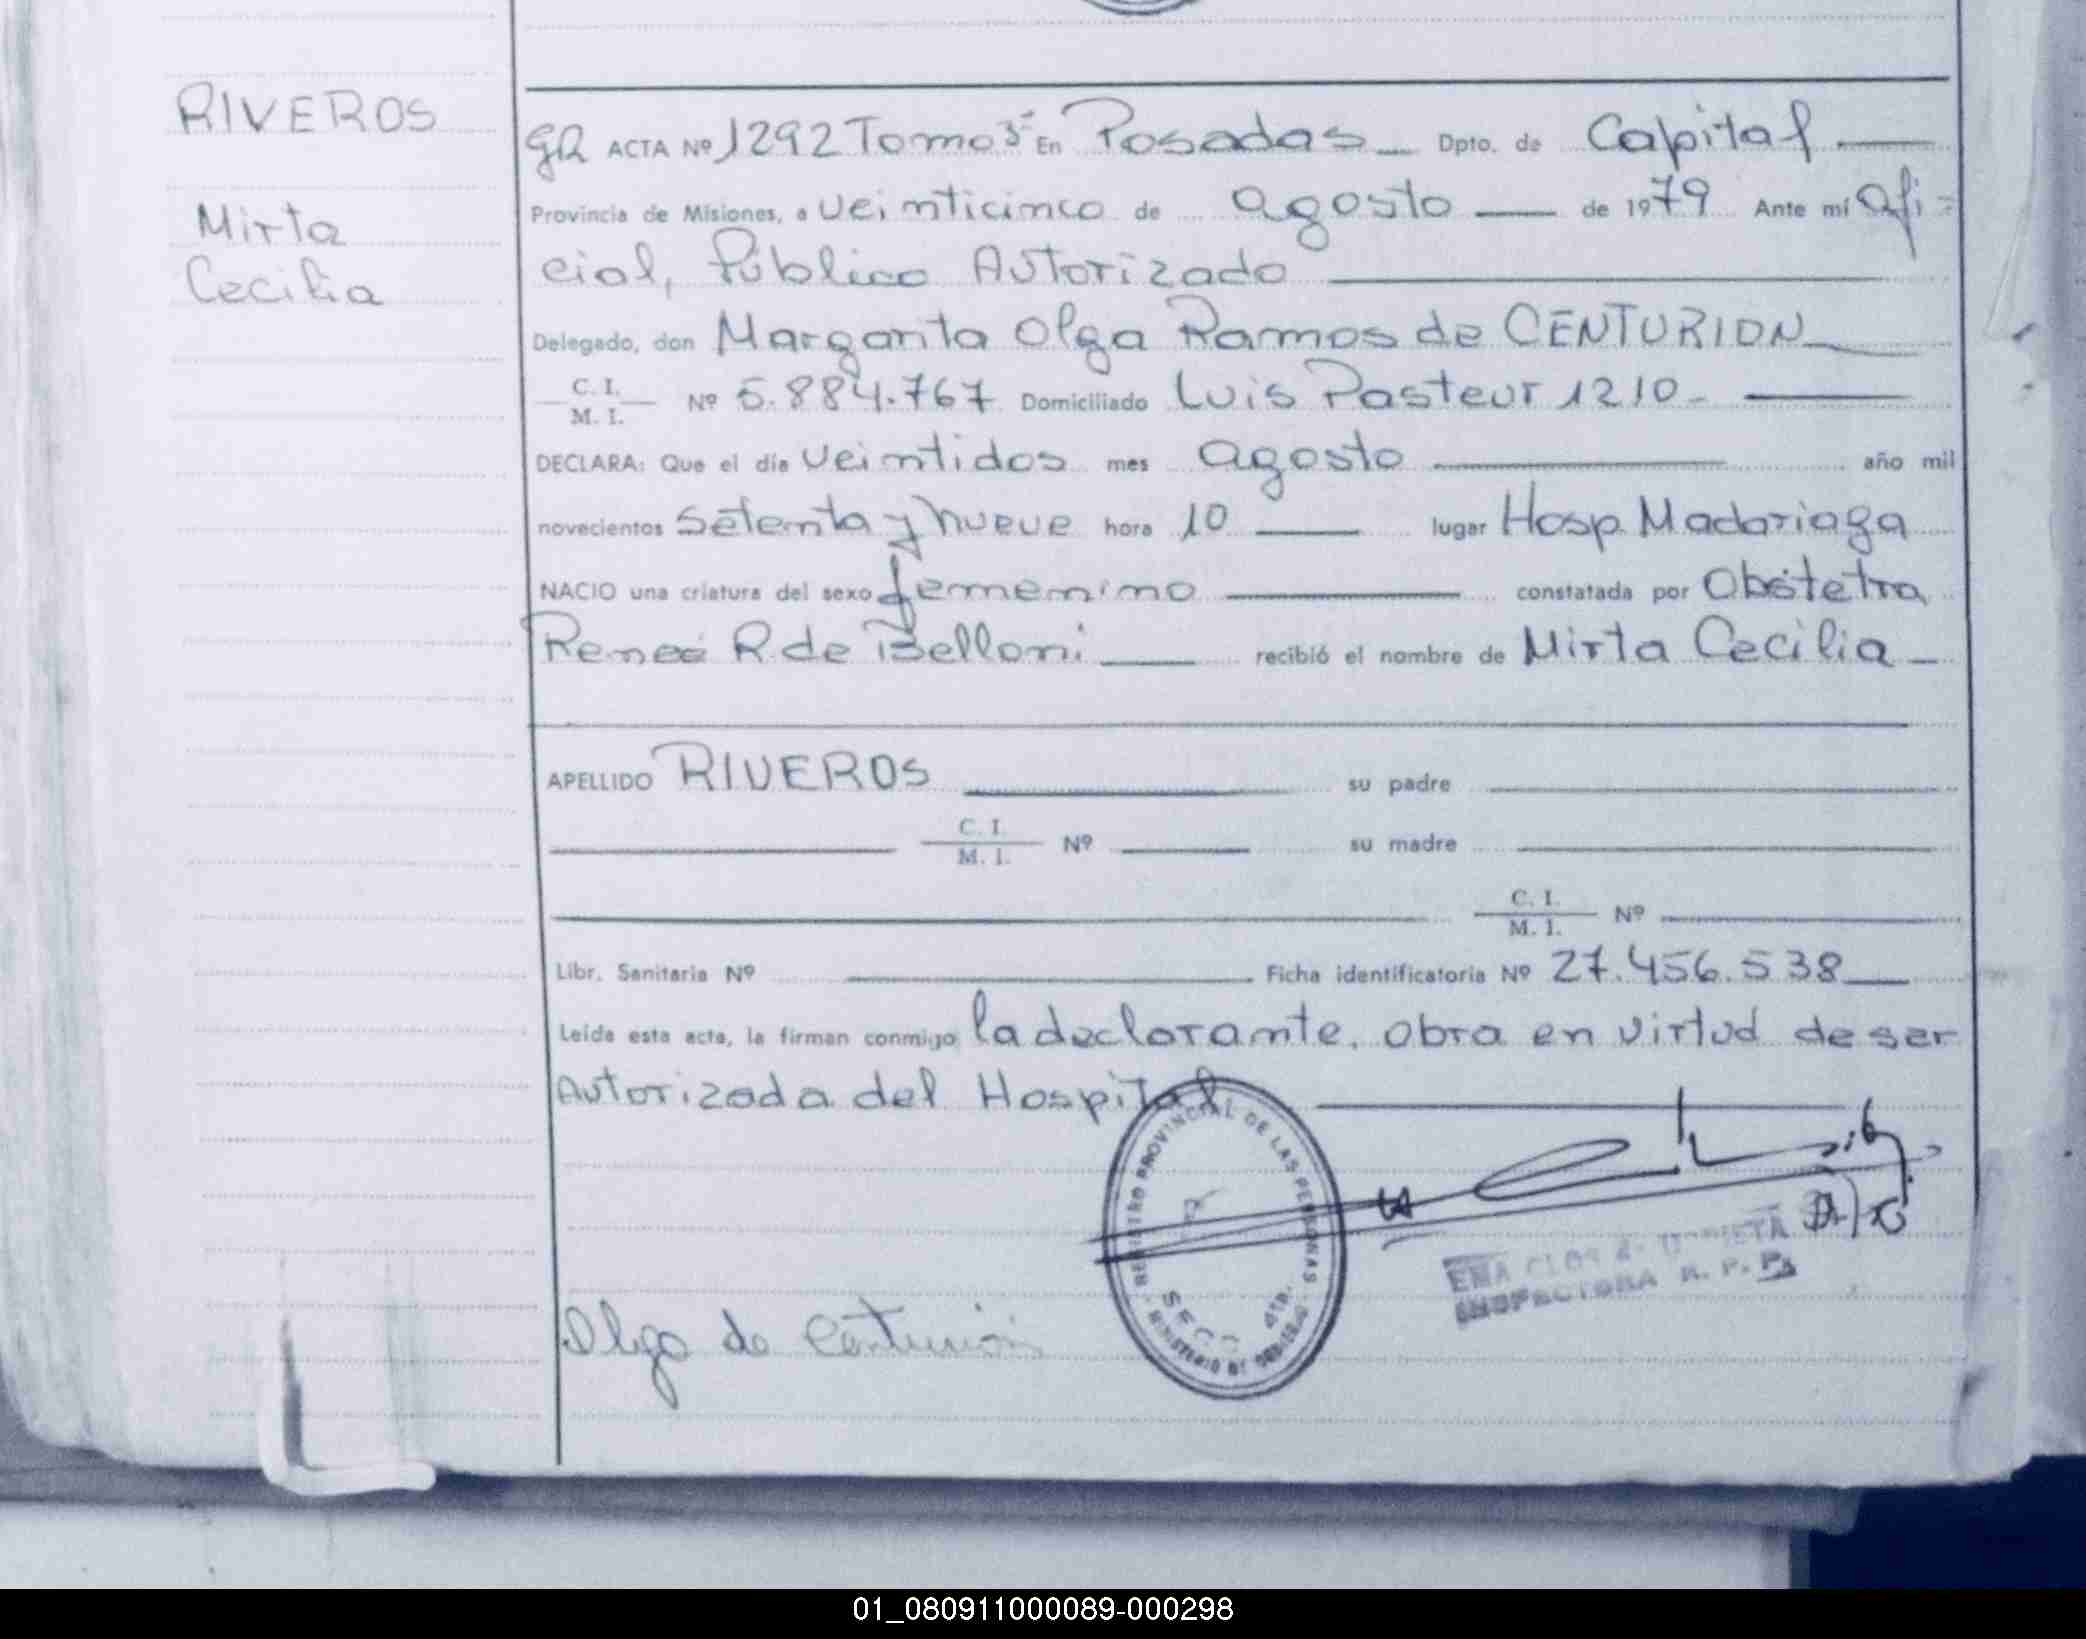 RIVEROS
Mirta
Cecilia
GR ACTA Nº 1292 Tomo 3º En Posadas Dpto. de Capital
Provincia de Misiones, a veinticinco de agosto de 1979 Ante mí Ofi=
cial, Público Autorizado
Delegado, don Margarita Olga Ramos de CENTURION
C. I.
M. I. Nº 5.884.767 Domiciliado Luis Pasteur 1210-
DECLARA: Que el día veintidos mes agosto año mil
novecientos setenta y nueve hora 10 lugar Hosp. Madariaga
NACIO una criatura del sexo femenino constatada por Obstetra
Reneé R. de Belloni recibió el nombre de Mirta Cecilia
APELLIDO RIVEROS su padre
C. I.
M. I. Nº su madre
C. I.
M. I. Nº
Libr. Sanitaria Nº Ficha identificatoria Nº 27.456.538
Leída esta acta, la firman conmigo la declarante, obra en virtud de ser
Autorizada del Hospital
REGISTRO PROVINCIAL DE LAS PERSONAS
SECC 4ta.
MINISTERIO DE GOBIERNO
INSPECTORA R. P. P.
Olga de Centurión
01_080911000089-000298